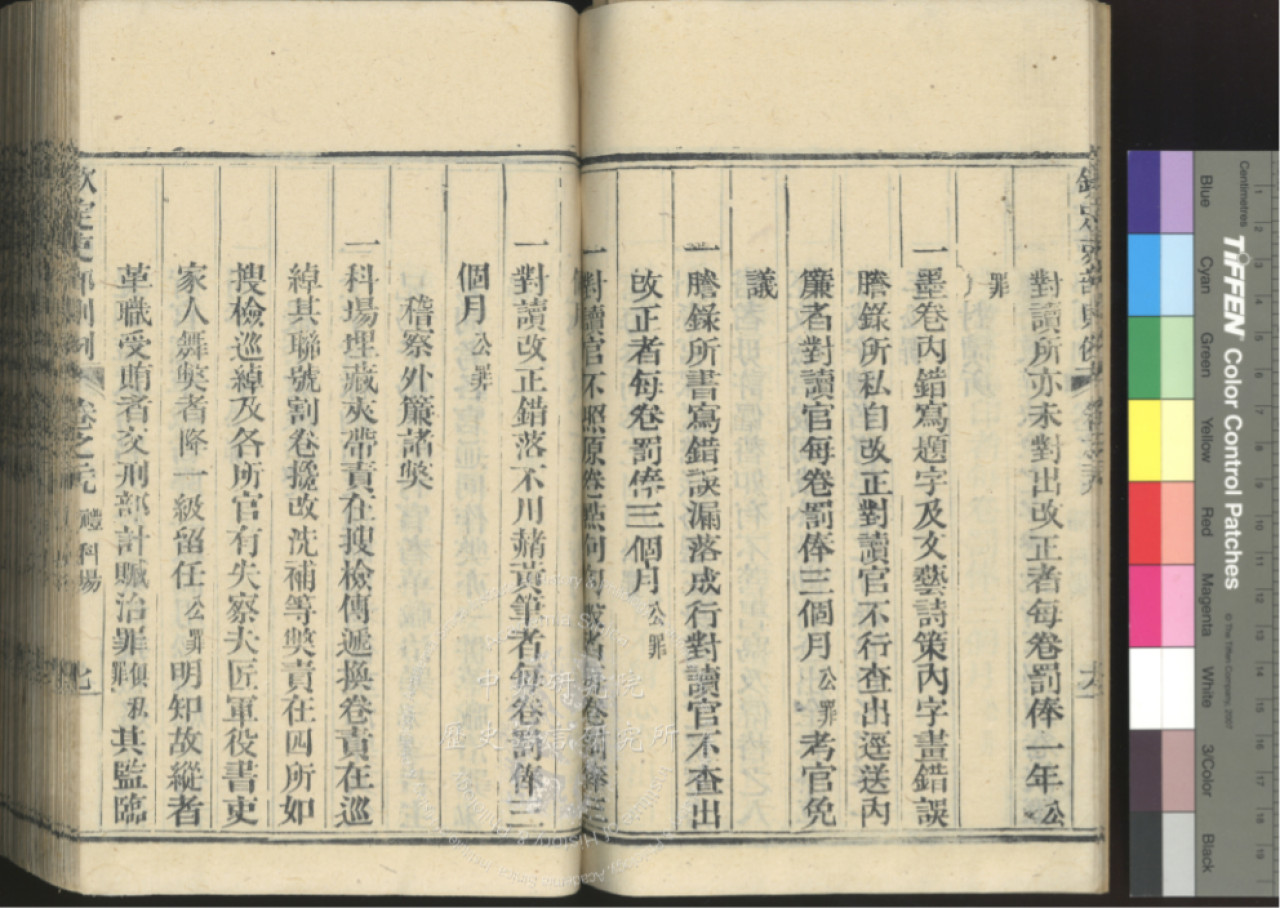 對讀所亦未對出改正者每卷罰俸一年公
罪
一墨卷內錯寫題字及文藝詩策內字畫錯誤
謄錄所私自改正對讀官不行查出逕送內
簾者對讀官每卷罰俸三個月公罪考官免
議
一謄錄所書寫錯誤漏落成行對讀官不查出
改正者每卷罰俸三個月公罪
一對讀官不照原卷點句勾股者每卷罰俸三
個月
一對讀改正錯落不用赭黃筆者每卷罰俸三
個月公罪
稽察外簾諸獘
一科場埋藏夾帶責在搜檢傳遞換卷責在巡
綽其聯號割卷撥改洗補等獘責在四所如
搜檢巡綽及各所官有失察夫匠軍役書吏
家人舞獘者降一級留任公罪明知故縱者
革職受賄者交刑部計贓治罪俱私罪其監臨
欽定吏部則例
卷之 禮科場 七
中央研究院
歷史語言研究所
Centimetres
TIFFEN Color Control Patches
© The Tiffen Company, 2007
Blue
Cyan
Green
Yellow
Red
Magenta
White
3/Color
Black
1
2
3
4
5
6
7
8
9
10
11
12
13
14
15
16
17
18
19